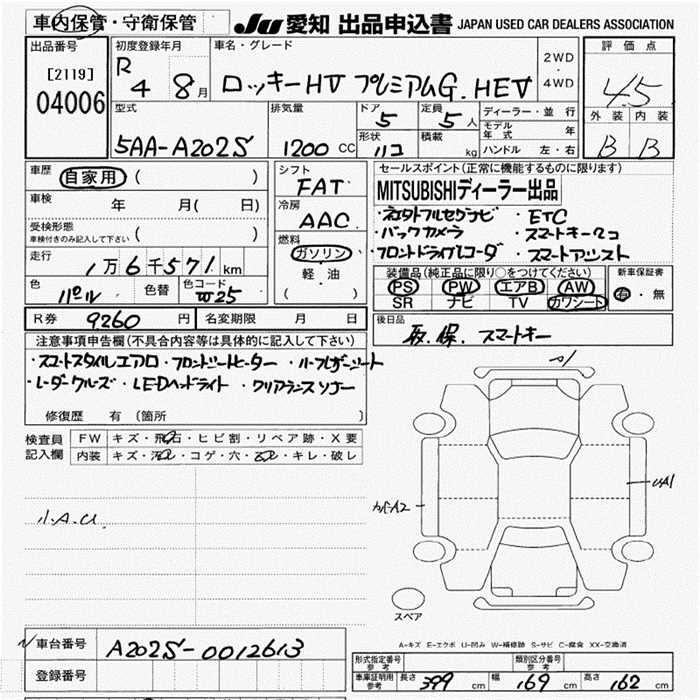 車内保管・守衛保管
JU 愛知 出品申込書 JAPAN USED CAR DEALERS ASSOCIATION
出品番号
[2119]
04006
初度登録年月
R 4 8月
車名・グレード
ロッキーHV プレミアムG.HEV
2WD
・
4WD
評価点
4.5
外装 内装
B B
型式
5AA-A202S
排気量
1200 CC
ドア
5
定員
5人
形状
ハコ
積載
kg
ディーラー・並行
モデル年式 年
ハンドル 左・右
車歴
自家用 ( )
車検 年 月( 日)
受検形態
車検付きのみ記入して下さい ( )
走行 1万6千571km
色 パール 色替 色コード W25
シフト
FAT
冷房
AAC
燃料
ガソリン
軽・油
( )
セールスポイント(正常に機能するものに限ります)
MITSUBISHIディーラー出品
・ネクタトフルセグナビ ・ETC
・バックカメラ ・スマートキー2コ
・フロントドライブレコーダ ・スマートアシスト
装備品(純正品に限り○をつけてください)
PS PW エアB AW
SR ナビ TV カワシート
新車保証書
有・無
R券 9260円 名変期限 月 日
後日品
取.保. スマートキー
注意事項申告欄(不具合内容等は具体的に記入して下さい)
・スマートスタイルエアロ・フロントシートヒーター ・ハーフレザーシート
・レーダークルーズ・LEDヘッドライト・クリアランスソナー
修復歴 有(箇所 )
検査員
記入欄
FW キズ・飛石・ヒビ割・リペア跡・X要
内装 キズ・汚レ・コゲ・穴・スレ・キレ・破レ
A1
UA1
A2
スペア
A-キズ E-エクボ U-凹み W-補修跡 S-サビ C-腐食 XX-交換済
車台番号 A202S-0012613
登録番号
形式指定番号
参考
類別区分番号
参考
車庫証明用
参考
長さ 399cm 幅 169cm 高さ 162cm